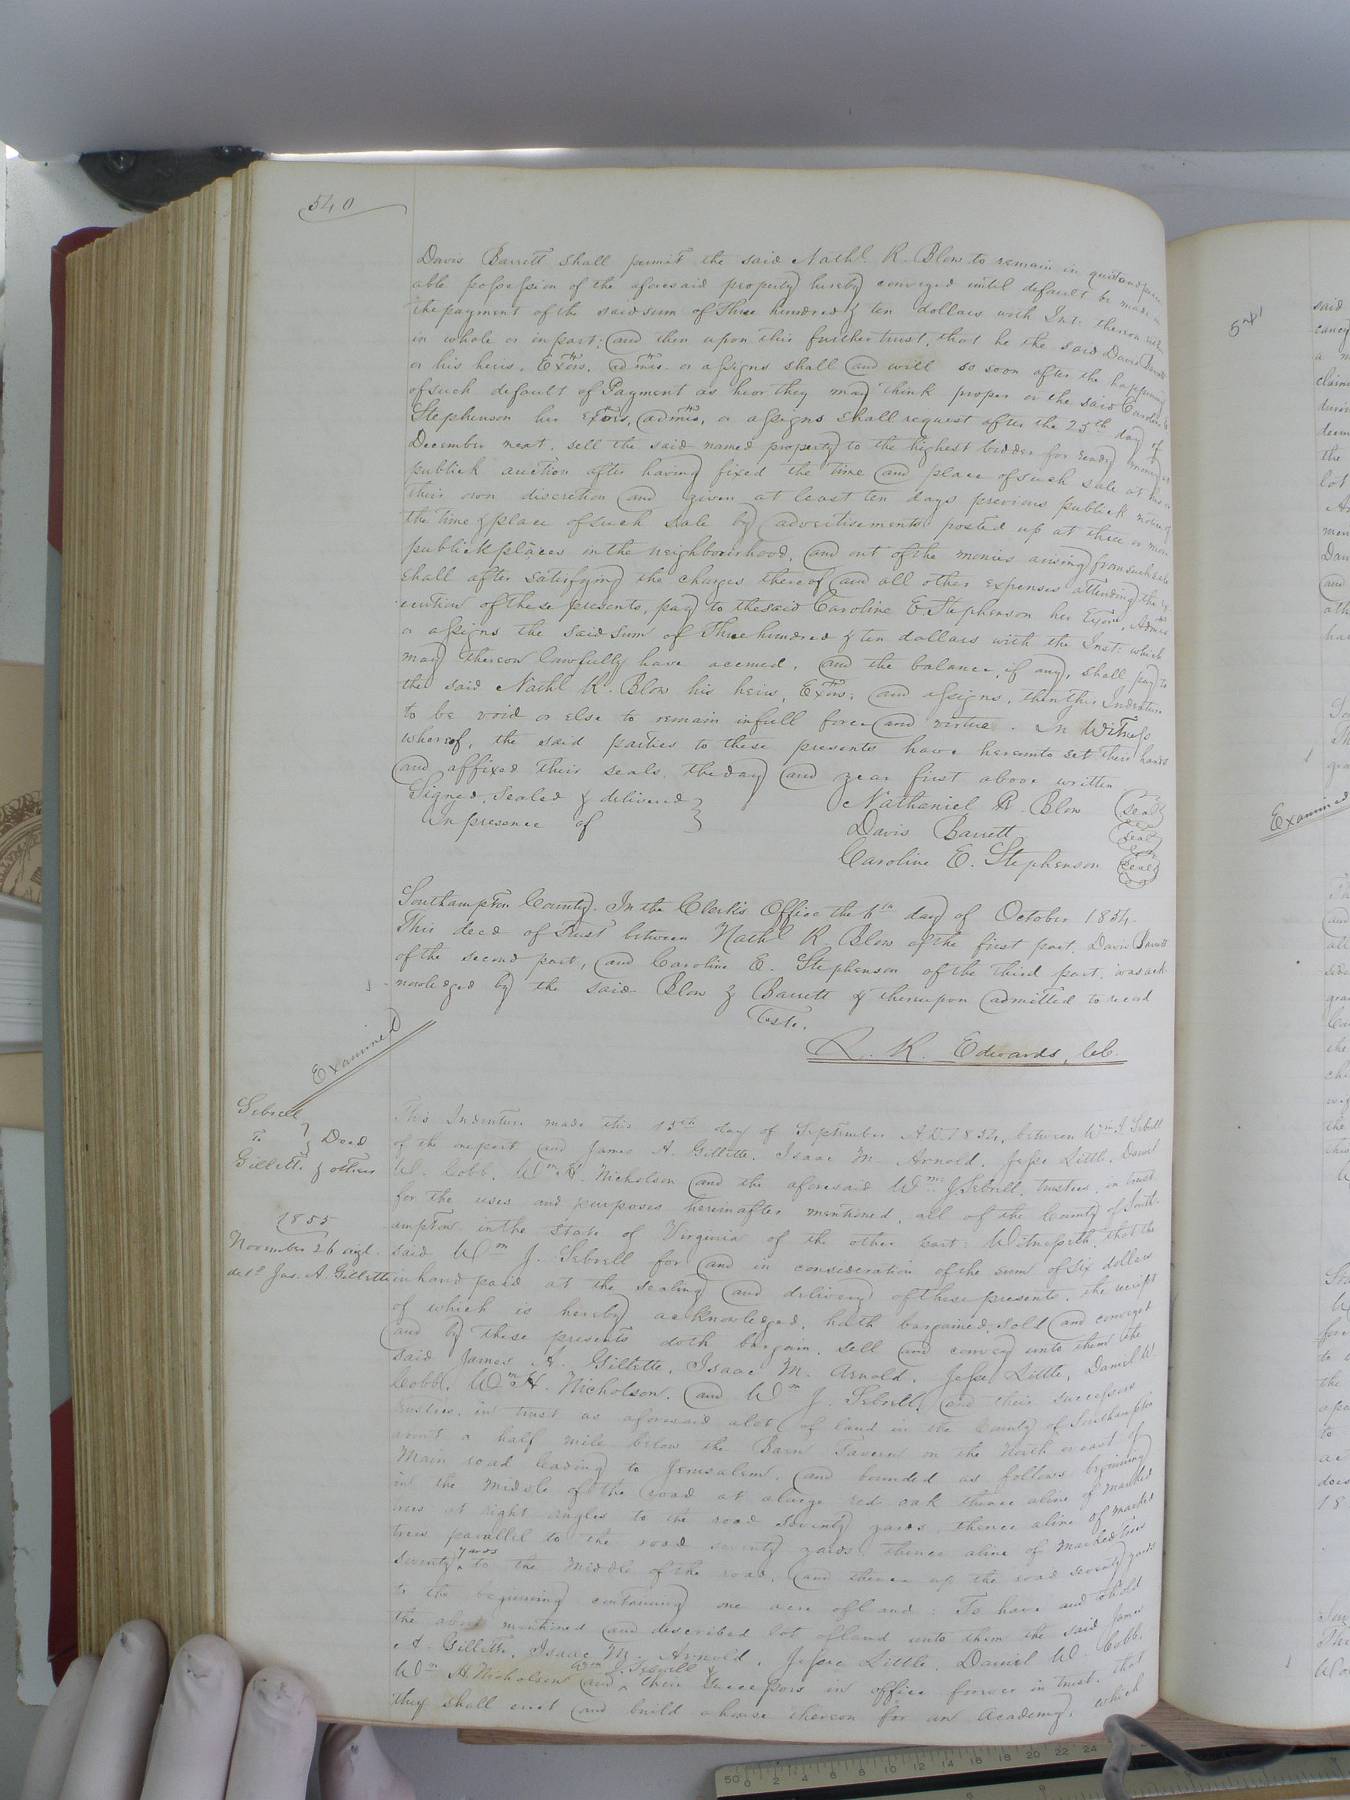 540
Davis Barrett shall permit the said Nathl. R. Blow to remain in quiet and peace
able possession of the aforesaid property hereby conveyed until default be made in
the payment of the said sum of Three hundred & ten dollars with Int: thereon either
in whole or in part; and then upon this further trust, that he the said Davis Barrett
or his heirs, Exors. admrs. or assigns shall and will so soon after the happening
of such default of Payment as he or they may think proper or the said Caroline E
Stephenson her Exors, admrs, or assigns shall request after the 25th day of
December next. sell the said named property to the highest bidder for ready money at
publick auction after having fixed the time and place of such sale at his or
their own discretion and given at least ten days previous publick notice of
the time & place of such sale by advertisements posted up at three or more
publick places in the neighbourhood, and out of the monies arising from such sale
shall after satisfying the charges thereof and all other expenses attending the ex
ecution of these presents, pay to the said Caroline E Stephenson her Exors, Admrs
or assigns the said sum of Three hundred & ten dollars with the Inst: which
may thereon lawfully have accrued, and the balance, if any, shall pay to
the said Nathl R. Blow his heirs, Exors; and assigns, then this Indenture
to be void or else to remain in full force and virtue. In Witness
whereof, the said parties to these presents have hereunto set their hands
and affixed their seals, the day and year first above written
Signed, Sealed & delivered } Nathaniel R. Blow (seal)
In presence of } Davis Barrett (seal)
Caroline E. Stephenson (seal)
Southampton County. In the Clerk's Office the 6th day of October 1854.
This deed of Trust between Nathl R. Blow of the first part, Davis Barrett
of the second part, and Caroline E. Stephenson of the third part, was ack
nowledged by the said Blow & Barrett & thereupon admitted to record
Teste.
L. R. Edwards, Cl.
Examined
Sebrell
To } Deed
Gillette & others
1855
November 26 origl.
deld Jas. A. Gillette
This Indenture made this 15th day of September A.D. 1854, between Wm J. Sebrell
of the one part and James A. Gillette, Isaac M. Arnold, Jesse Little, Daniel
W. Cobb, Wm H. Nicholson and the aforesaid Wm. J. Sebrell, trustees, in trust
for the uses and purposes hereinafter mentioned, all of the County of South-
ampton in the State of Virginia of the other part: Witnesseth, that the
said Wm J. Sebrell for and in consideration of the sum of six dollars
in hand paid at the sealing and delivery of these presents, the receipt
of which is hereby acknowledged, hath bargained, sold and conveyed
and by these presents doth bargain, sell and convey unto them the
said James A. Gillette, Isaac M. Arnold, Jesse Little, Daniel W
Cobb, Wm H. Nicholson, and Wm J. Sebrell, and their successors
trustees, in trust as aforesaid a lot of land in the County of Southampton
about a half mile below the Barn Tavern on the North east of
Main road leading to Jerusalem, and bounded as follows beginning
in the middle of the road at a large red oak thence a line of marked
trees at right angles to the road seventy yards, thence a line of marked
trees parallel to the road seventy yards, thence a line of marked trees
seventy yards to the middle of the road, and thence up the road seventy yards
to the beginning containing one acre of land: To have and to hold
the above mentioned and described lot of land unto them the said James
A. Gillette, Isaac M. Arnold, Jesse Little, Daniel W. Cobb,
Wm H. Nicholson and Wm J. Sebrell & their successors in office forever in trust, that
they shall erect and build a house thereon for an Academy, which